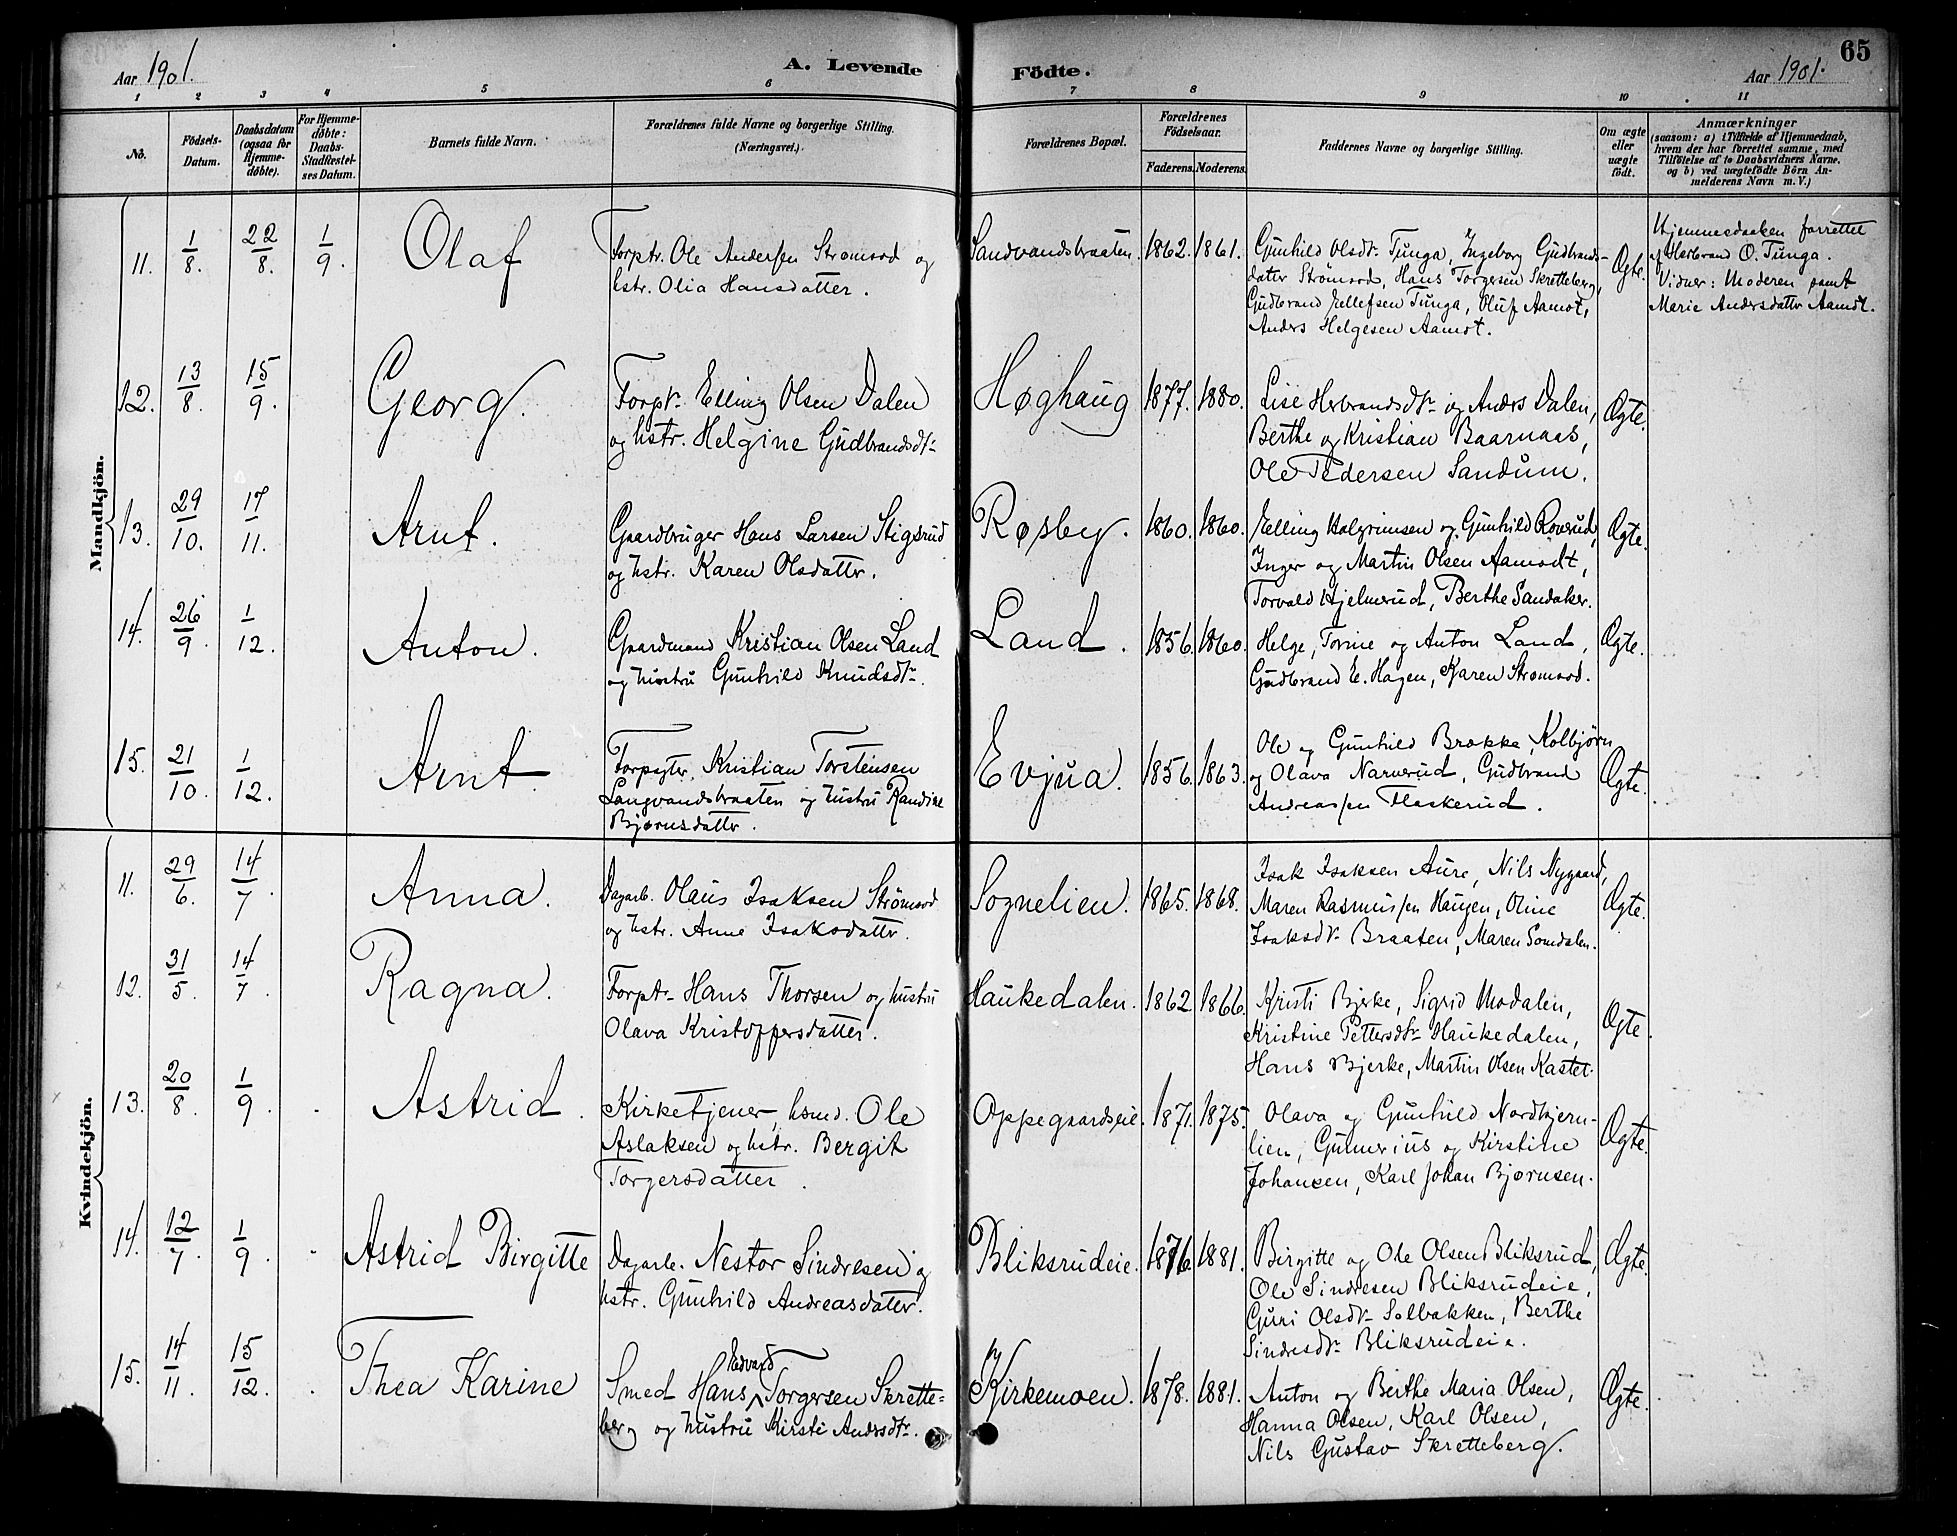 Aar 1901. A. Levende Födte. Aar 1901. 65
1 2 3 4 5 6 7 8 9 10 11
No. Födsels-Datum. Daabsdatum (ogsaa for Hjemmedøbte). For Hjemmedøbte: Daabs-Stadfæstelses Datum. Barnets fulde Navn. Forældrenes fulde Navne og borgerlige Stilling. (Næringsvei.) Forældrenes Bopæl. Forældrenes Födselsaar. Faderens. Moderens. Faddernes Navne og borgerlige Stilling. Om ægte eller uægte født. Anmærkninger (saasom: a) i Tilfælde af Hjemmedaab, hvem der har forrettet samme, med Tilføielse af to Daabsvidners Navne, og b) ved uægtefödte Börn Anmelderens Navn m. V.)
Mandkjön.
11. 1/8. 22/8. 1/9. Olaf Forptr. Ole Andersen Strømsod og
hstr. Olia Hansdatter.
Sandvandsbraaten. 1862. 1861. Gunhild Olsdtr Tunga, Ingeborg Gudbrands-
datter Strømsod, Hans Torgersen Skretteberg,
Gudbrand Ellefsen Tunga, Oluf Aamot,
Anders Helgesen Aamot.
Ægte.
Hjemmedaaben forrettet
af Herbrand O. Tunga.
Vidner: Moderen samt
Marie Andersdatter Aamot.
12. 13/8. 15/9. Georg. Forptr Elling Olsen Dalen
og hstr. Helgine Gudbrandsdtr
Høghaug 1877. 1880. Lise Herbrandsdtr og Anders Dalen,
Berthe og Kristian Baarnaas,
Ole Pedersen Sandum.
Ægte.
13. 29/10. 17/11. Arnt. Gaardbruger Hans Larsen Stigsrud
og hstr. Karen Olsdatter.
Røsby. 1860. 1860. Elling Halgrimsen og Gunhild Roverud,
Inger og Martin Olsen Aamodt,
Torvald Hjelmerud, Berthe Sandaker.
Ægte.
14. 26/9. 1/12. Anton. Gaardmand Kristian Olsen Land
og hustru Gunhild Knudsdtr.
Land. 1856. 1860. Helge, Torine og Anton Land,
Gudbrand E. Hagen, Karen Strømsod.
Ægte.
15. 21/10. 1/12. Arnt Forpagter Kristian Torstensen
Langvandsbraaten og hustru Randine
Bjørnsdatter.
Evjua. 1856. 1863. Ole og Gunhild Brække, Kolbjørn
og Olava Narverud, Gudbrand
Andreassen Flaskerud.
Ægte.
Kvindekjön.
11. 29/6. 14/7. Anna. Dagarb. Olaus Isaksen Strømsod
og hstr. Anne Isaksdatter.
Sognelien. 1865. 1868. Isak Isaksen Aure, Nils Nygaard,
Maren Rasmussen Haugen, Oline
Isaksdtr Braaten, Maren Somdalen.
Ægte.
12. 31/5. 14/7. Ragna. Forptr Hans Thorsen og hustru
Olava Kristoffersdatter.
Haukedalen. 1862. 1866. Kristi Bjerke, Sigrid Modalen,
Kristine Pettersdtr Haukedalen,
Hans Bjerke, Martin Olsen Kastet.
Ægte.
13. 20/8. 1/9. Astrid. Kirketjener, hsmd. Ole
Aslaksen og hstr. Bergit
Torgersdatter.
Oppegaardseie. 1871. 1875. Olava og Gunhild Nordbjern-
lien, Gunerius og Kirstine
Johansen, Karl Johan Bjørnsen.
Ægte.
14. 12/7. 1/9. Astrid Birgitte Dagarb. Nestor Sindresen og
hstr. Gunhild Andreasdatter.
Bliksrudeie. 1876. 1881. Birgitte og Ole Olsen Bliksrud,
Ole Sindresen Bliksrudeie,
Guri Olsdtr Solbakken, Berthe
Sindresdtr Bliksrudeie.
Ægte.
15. 14/11. 15/12. Thea Karine Smed Hans Edvard Torgersen Skrette=
berg og hustru Kirsti Andersdtr.
Kirkemoen. 1878. 1881. Anton og Berthe Maria Olsen,
Hanna Olsen, Karl Olsen,
Nils Gustav Skretteberg.
Ægte.